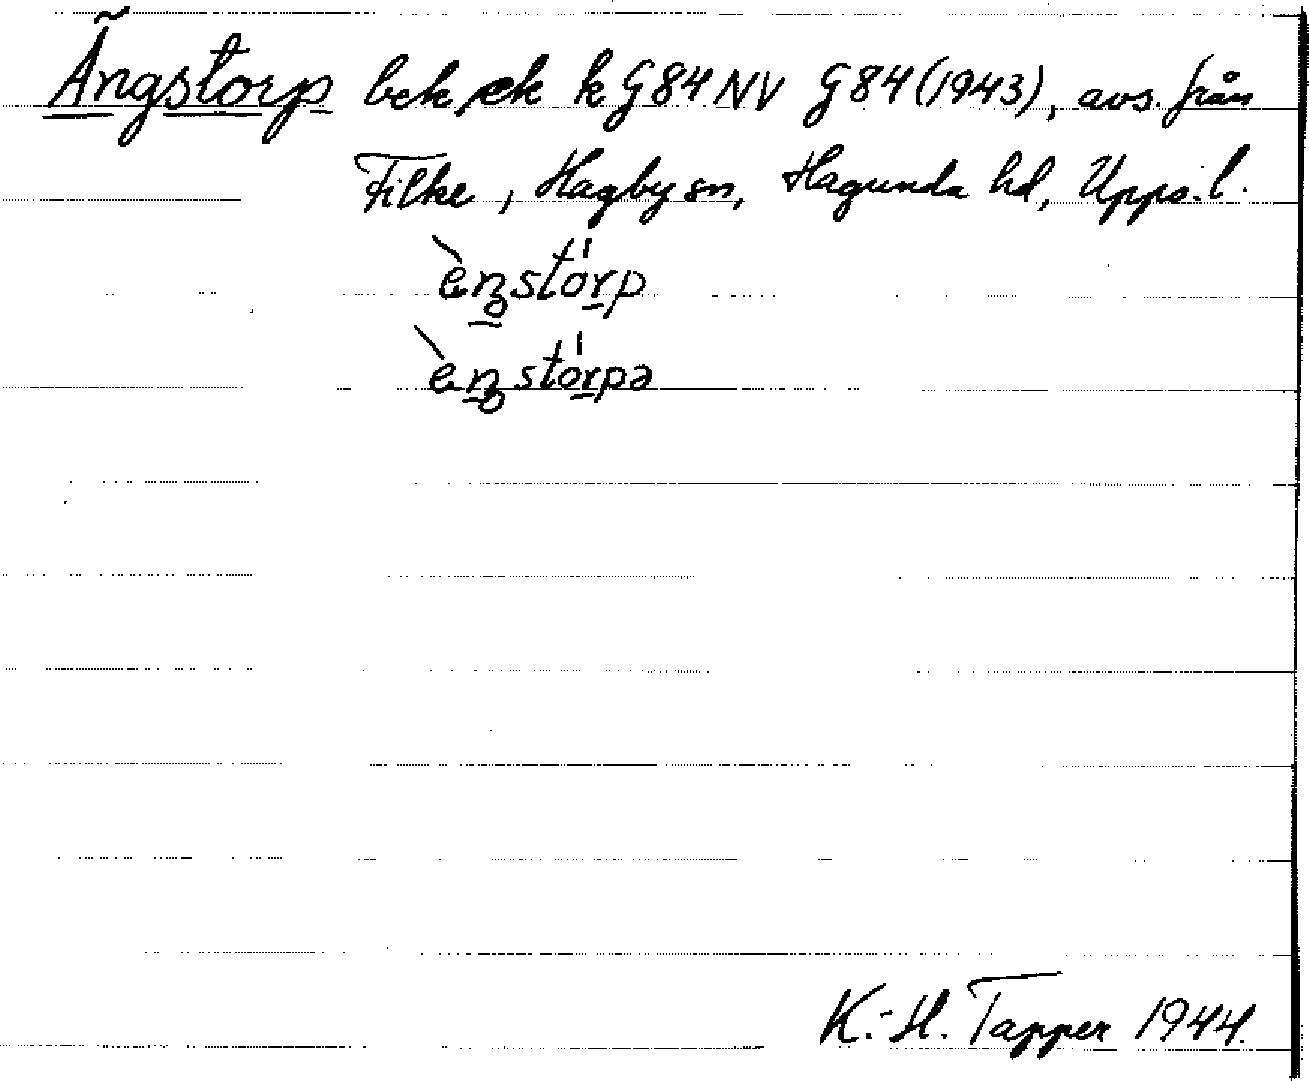 Ängstorp bek, ek k G84NV G84(1943), avs. från
Filke, Hagby sn, Hagunda hd, Upps. l.
K.-H. Tapper 1944.